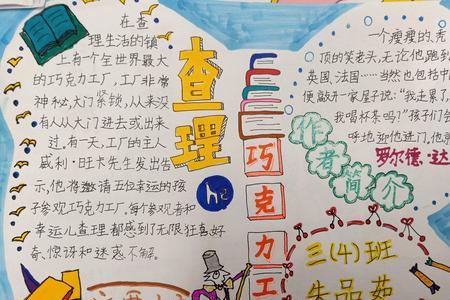 在查
理生活的镇
上有个全世界最大
的巧克力工厂,工厂非常
神秘,大门紧锁,从来没
有人从大门进去或出来
过。有一天,工厂的主人
威利·旺卡先生发出告
示,他将邀请五位幸运的孩
子参观巧克力工厂。每个参观者和
幸运儿查理都感到无限狂喜好
奇、惊讶和迷惑不解。
查理
h
巧克力工
一个瘦瘦的秃
顶的笑老头,无论他跑到
英国、法国……当然也包括中
便敲开一家屋子说:“我走累了
我喝杯茶吗?”孩子们会
呼地迎他进门,他就
罗尔德·达
作者简介
三(4)班
朱品茹